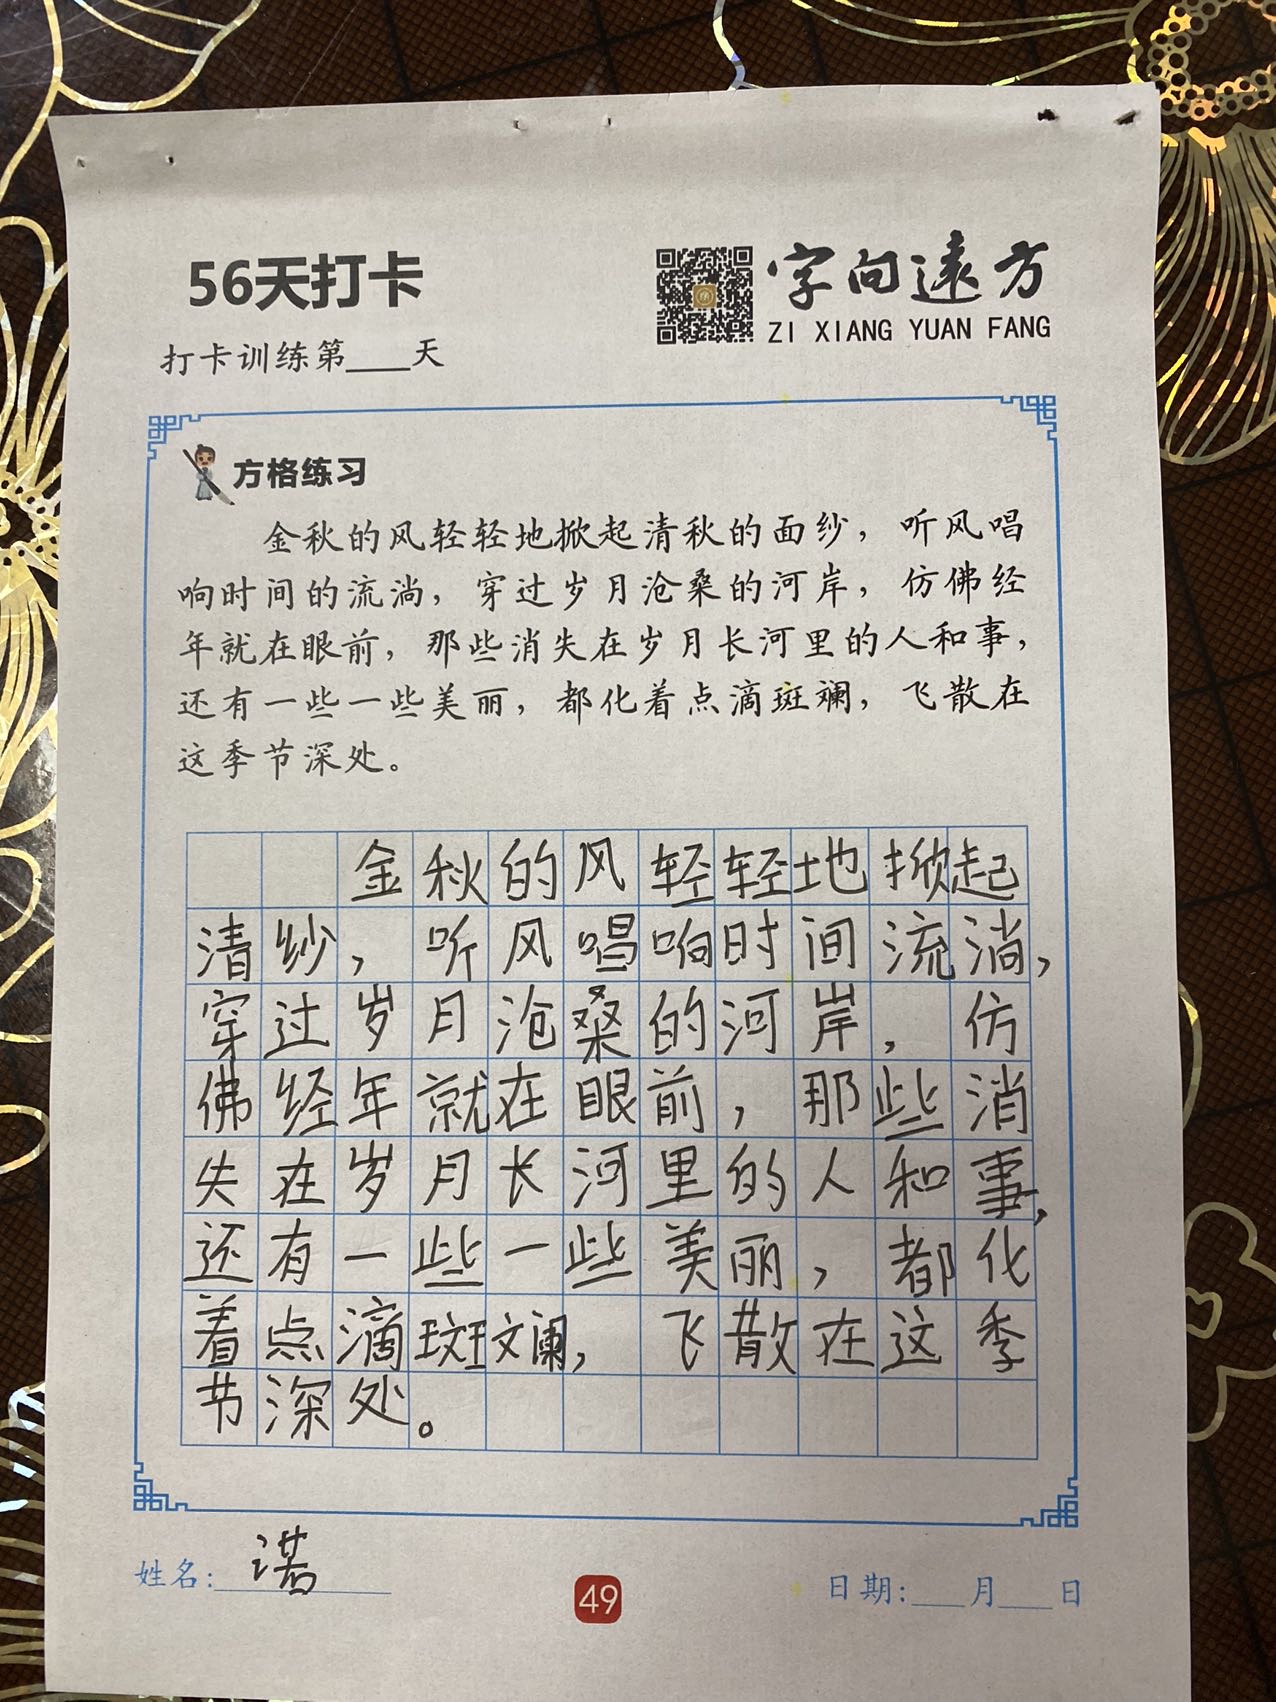 56天打卡
字向远方
ZI XIANG YUAN FANG
打卡训练第____天
方格练习
金秋的风轻轻地掀起清秋的面纱，听风唱
响时间的流淌，穿过岁月沧桑的河岸，仿佛经
年就在眼前，那些消失在岁月长河里的人和事，
还有一些一些美丽，都化着点滴斑斓，飞散在
这季节深处。
金秋的风轻轻地掀起
清纱，听风唱响时间流淌，
穿过岁月沧桑的河岸，仿
佛经年就在眼前，那些消
失在岁月长河里的人和事，
还有一些一些美丽，都化
着点滴斑斓，飞散在这季
节深处。
姓名：诺
49
日期：___月___日